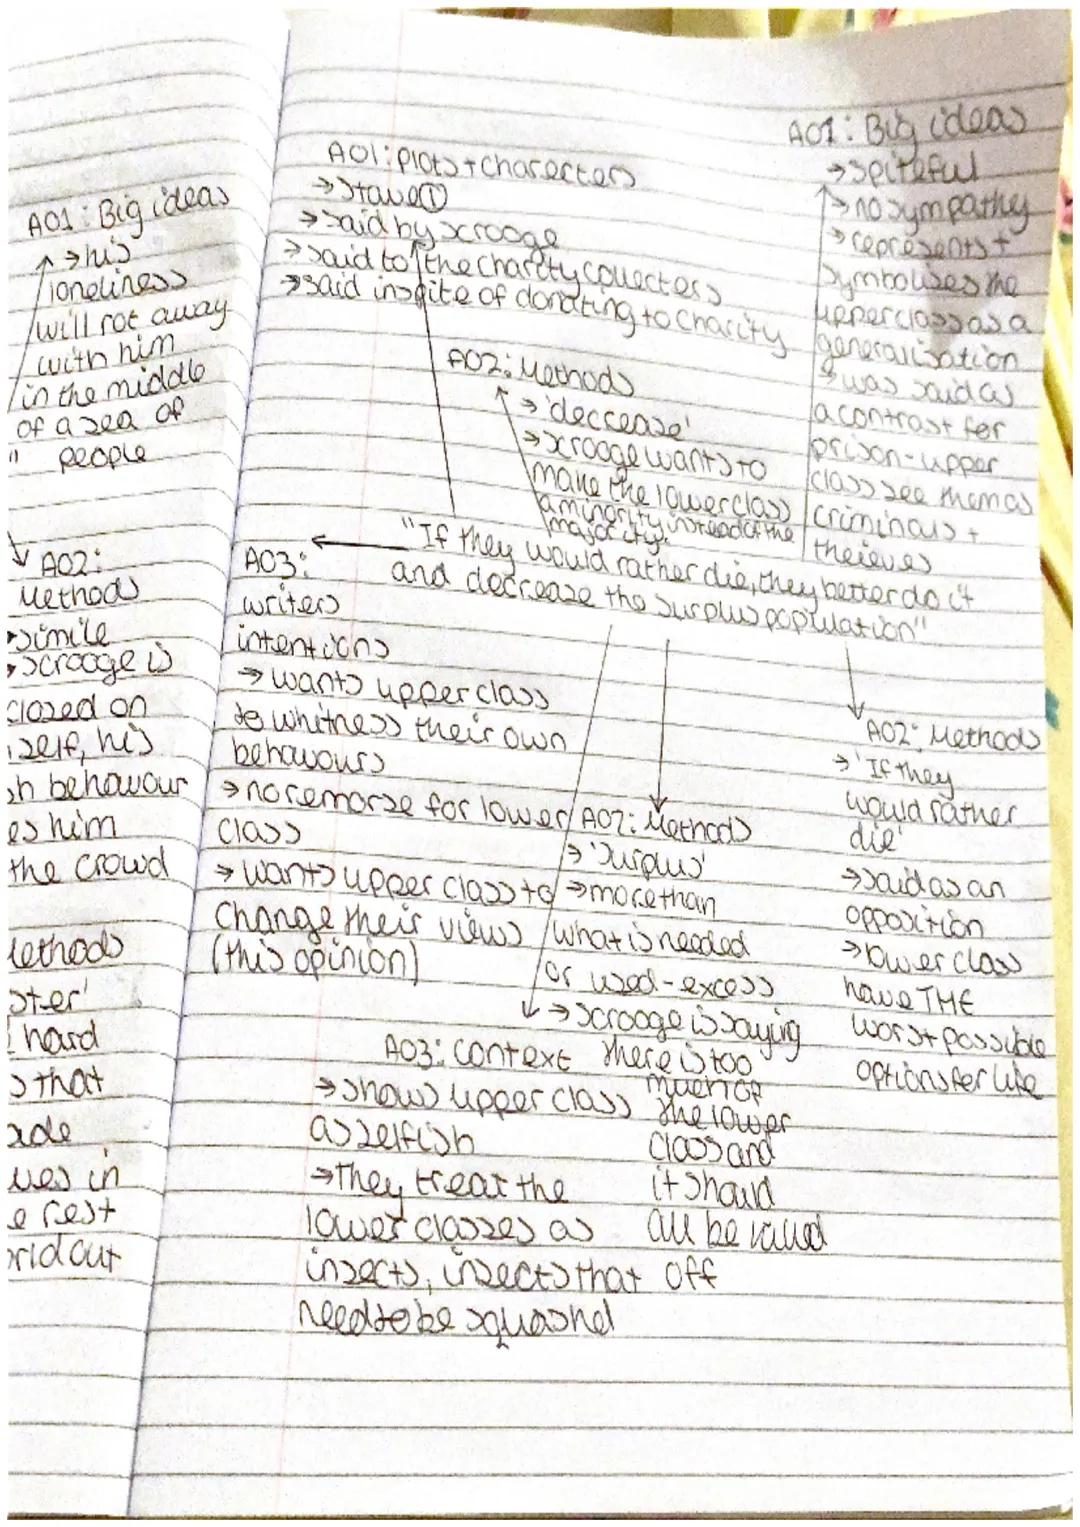 AO1: Big ideas
→ his
loneliness
will rot away
with him
in the middle
of a sea of
" people
AO2:
Methods
→simile
→scrooge is
closed on
self, his
behavour
him
the crowd
hard
that
in
rest
out
AO1: plots + charecters
→ Stave ①
→ said by scrooge
→ said to the charity collecters
→ said inspite of donating to charity
AO1: Big ideas
→ spiteful
→ no sympathy
→ represents +
symbolises the
upperclass as a
generalisation
→ was said as
a contrast for
prison - upper
class see them as
criminals +
theieves
AO2: Methods
→ 'deccease'
→ scrooge wants to
make the lowerclass
a minority instead of the
majority.
"If they would rather die, they better do it
and decrease the surplus population"
AO3:
writers
intentions
→ wants upper class
to whitness their own
behavours
→ no remorse for lower
class
→ wants upper class to
change their views
(this opinion)
AO2: Methods
→ 'Surplus'
→ more than
what is needed
or used - excess
→ scrooge is saying
there is too
much of
the lower
class and
it should
all be
off
AO2: Methods
→ 'If they
would rather
die'
→ said as an
opposition
→ lower class
have THE
worst possible
options for life
AO3: context
→ shows upper class
as selfish
→ They treat the
lower classes as
insects, insects that
need to be squashed